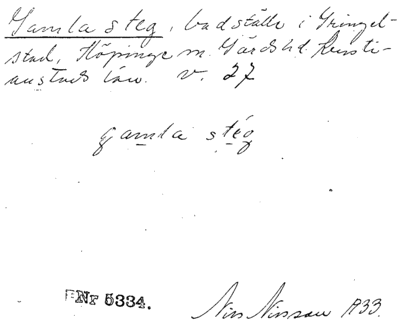 Gamla steg, badställe i Gringel-
stad, Köpinge sn. Gärds hd. Kristi-
anstads län. v. 27
gamla stég
Nr 5334.
Nils Nilsson 1933.